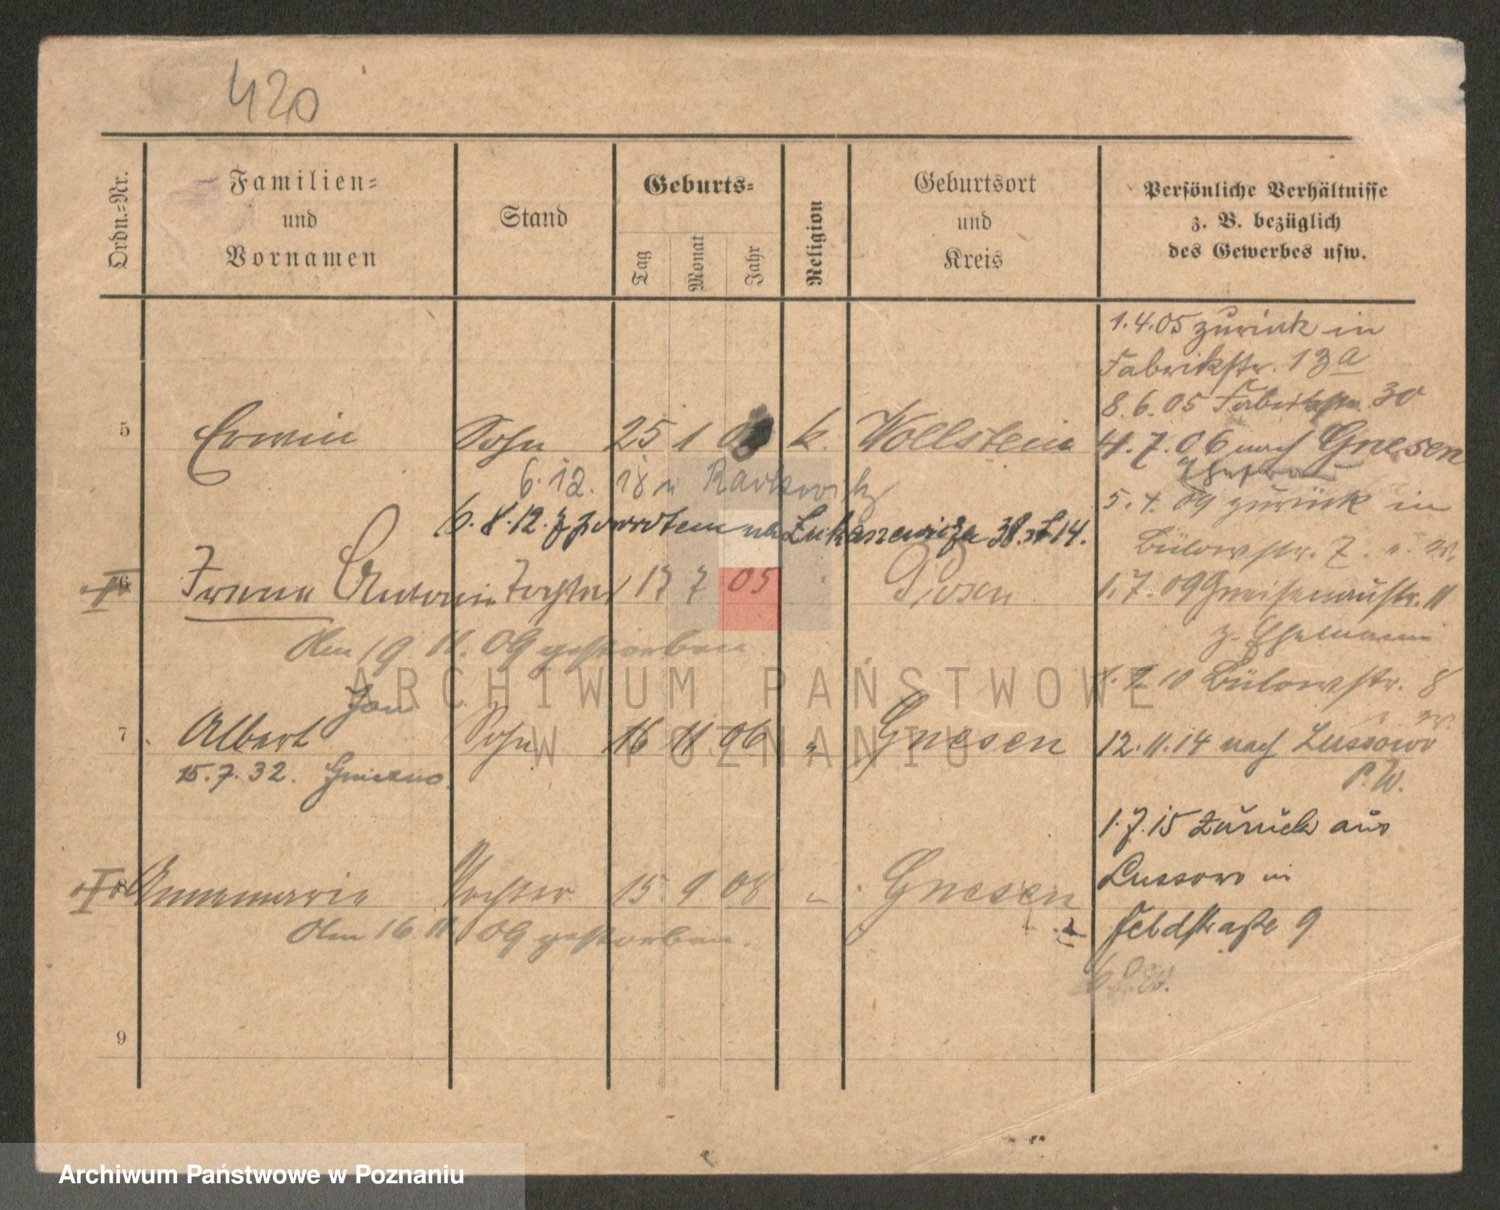 420
Ordn.-Nr.
Familien-
und
Vornamen
Stand
Geburts-
Tag
Monat
Jahr
Religion
Geburtsort
und
Kreis
Persönliche Verhältnisse
z. B. bezüglich
des Gewerbes usw.
1.4.05 zurück in
Fabrikstr. 13a
8.6.05 Fabrikstr. 30
5 Erwin Sohn 25 1 k. Wollstein
4.7.06 nach Gnesen
6.12.18 n Rackwitz
5.4.09 zurück in
6.8.12. 38 14.
Bülowstr. 7.
6 Irene Tochter 17 7 05 Posen
1.7.09 Gneisenaustr. 11
z. Ehemann
Am 19.11.09 gestorben
7.10 Bülowstr. 8
Jan
7 Albert Sohn 16 11 06 " Gnesen
12.11.14 nach Lussowo
P.W.
15.7.32. Gniezno.
1.7.15 zurück aus
Lussowo in
8 Annemarie Tochter 15 9 08 " Gnesen
Feldstraße 9
Am 16.11.09 gestorben.
9
ARCHIWUM PAŃSTWOWE
W POZNANIU
Archiwum Państwowe w Poznaniu